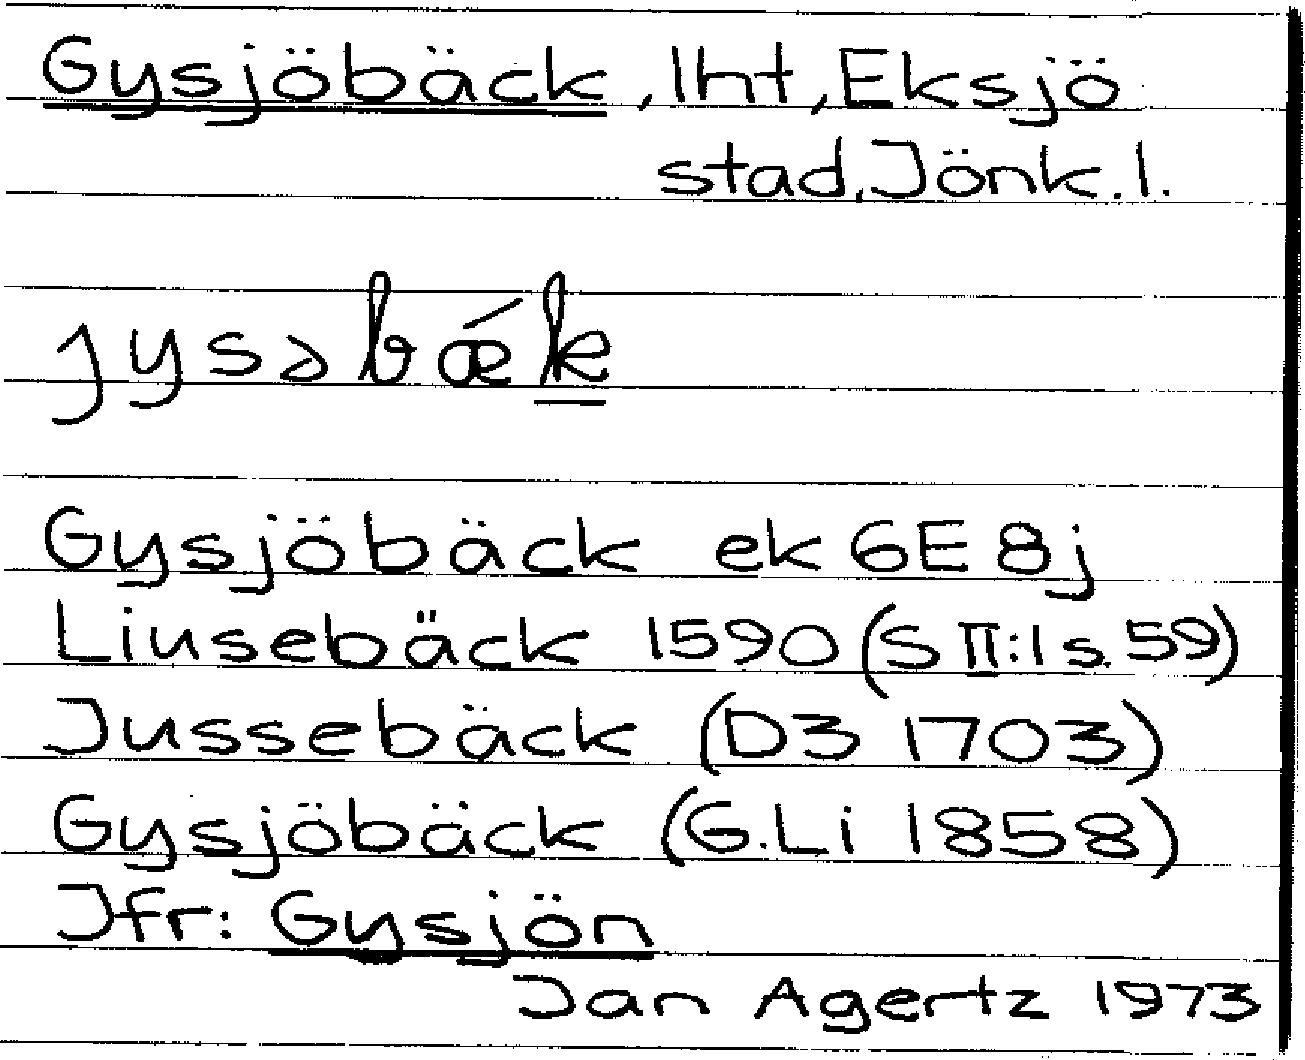 Gysjöbäck, lht, Eksjö
stad, Jönk. l.
jysəbǽk
Gysjöbäck ek 6E 8j
Liusebäck 1590 (S II:1 s. 59)
Jussebäck (D3 1703)
Gysjöbäck (G.Li 1858)
Jfr: Gysjön
Jan Agertz 1973